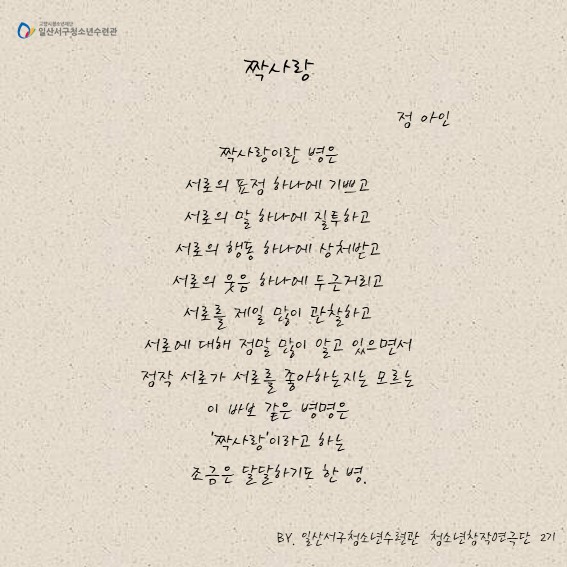 고양시청소년재단
일산서구청소년수련관
짝사랑
정 아인
짝사랑이란 병은
서로의 표정 하나에 기쁘고
서로의 말 하나에 질투하고
서로의 행동 하나에 상처받고
서로의 웃음 하나에 두근거리고
서로를 제일 많이 관찰하고
서로에 대해 정말 많이 알고 있으면서
정작 서로가 서로를 좋아하는지는 모르는
이 바보 같은 병명은
'짝사랑'이라고 하는
조금은 달달하기도 한 병.
BY. 일산서구청소년수련관 청소년창작연극단 2기